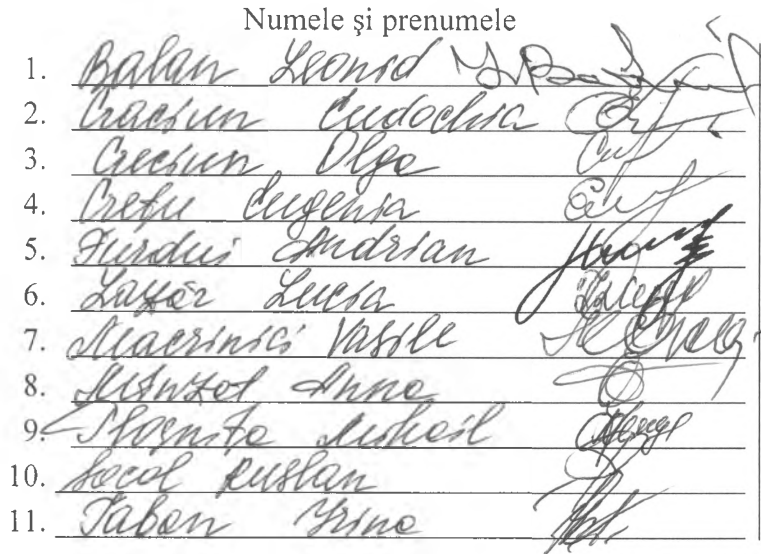 Numele şi prenumele
1. Balan Leonid
2. Craciun Eudochia
3. Creciun Olga
4. Crețu Eugenia
5. Furdui Andrian
6. Lazăr Lucia
7. Macrinici Vasile
8. Anna
9. Mihail
10. Socol Ruslan
11. Taban Irina